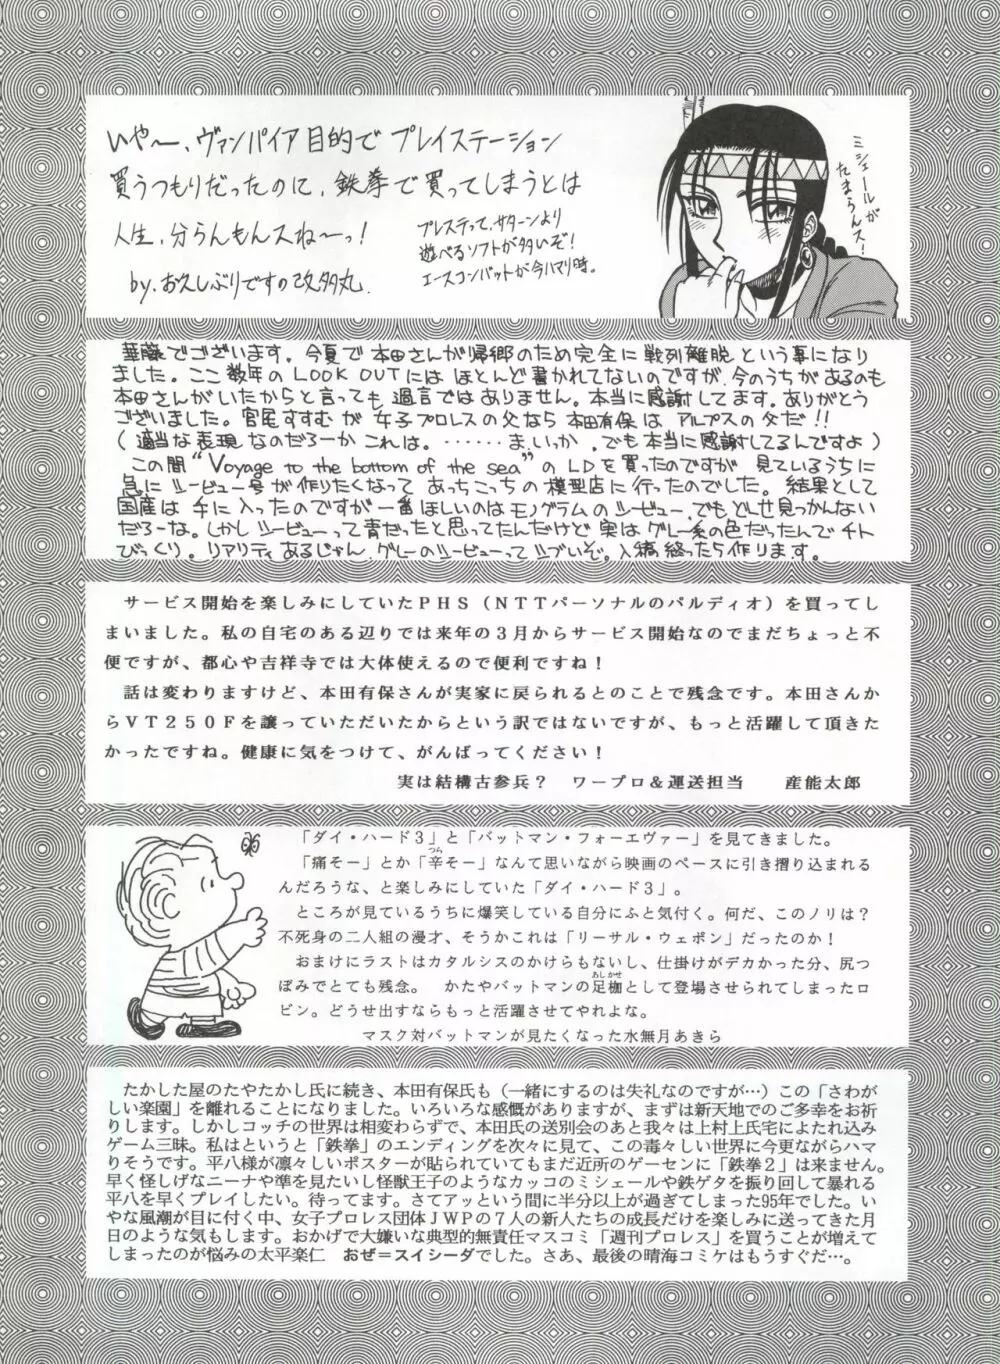 いや〜、ヴァンパイア目的で プレイステーション
買うつもりだったのに、鉄拳で買ってしまうとは
人生、分らんもんスね〜っ!
by.お久しぶりですの改多丸.
プレステって、サターンより
遊べるソフトが多いぞ!
エースコンバットが今ハマり時。
ミシェールが
たまらんス!
華藤でございます。今夏で本田さんが帰郷のため完全に戦列離脱という事になり
ました。ここ数年のLOOK OUTにはほとんど書かれてないのですが、今のうちがあるのも
本田さんがいたからと言っても過言ではありません。本当に感謝してます。ありがとう
ございました。宮尾すすむが女子プロレスの父なら本田有保はアルプスの父だ!!
(適当な表現なのだろーかこれは。‥‥‥ま、いっか。でも本当に感謝してるんですよ)
この間“Voyage to the bottom of the sea”のLDを買ったのですが見ているうちに
急にシービュー号が作りたくなってあっちこっちの模型店に行ったのでした。結果として
国産は手に入ったのですが一番ほしいのはモノグラムのシービュー、でもどしせ見っかんない
だろーな。しかしシービューって青だったと思ってたんだけど実はグレー系の色だったんでチト
びっくり。リアリティあるじゃん、グレーのシービューってシブいぞ。入稿終ったら作ります。
サービス開始を楽しみにしていたPHS(NTTパーソナルのパルディオ)を買ってし
まいました。私の自宅のある辺りでは来年の3月からサービス開始なのでまだちょっと不
便ですが、都心や吉祥寺では大体使えるので便利ですね!
話は変わりますけど、本田有保さんが実家に戻られるとのことで残念です。本田さんか
らVT250Fを譲っていただいたからという訳ではないですが、もっと活躍して頂きた
かったですね。健康に気をつけて、がんばってください!
実は結構古参兵? ワープロ&運送担当 産能太郎
「ダイ・ハード3」と「バットマン・フォーエヴァー」を見てきました。
「痛そー」とか「辛そー」なんて思いながら映画のペースに引き摺り込まれる
んだろうな、と楽しみにしていた「ダイ・ハード3」。
ところが見ているうちに爆笑している自分にふと気付く。何だ、このノリは?
不死身の二人組の漫才、そうかこれは「リーサル・ウェポン」だったのか!
おまけにラストはカタルシスのかけらもないし、仕掛けがデカかった分、尻つ
ぼみでとても残念。 かたやバットマンの足枷として登場させられてしまったロ
ビン。どうせ出すならもっと活躍させてやれよな。
マスク対バットマンが見たくなった水無月あきら
たかした屋のたやたかし氏に続き、本田有保氏も(一緒にするのは失礼なのですが…)この「さわが
しい楽園」を離れることになりました。いろいろな感慨がありますが、まずは新天地でのご多幸をお祈
りします。しかしコッチの世界は相変わらずで、本田氏の送別会のあと我々は上村上氏宅によたれ込み
ゲーム三昧。私はというと「鉄拳」のエンディングを次々に見て、この毒々しい世界に今更ながらハマ
りそうです。平八様が凛々しいポスターが貼られていてもまだ近所のゲーセンに「鉄拳2」は来ません。
早く怪しげなニーナや準を見たいし怪獣王子のようなカッコのミシェールや鉄ゲタを振り回して暴れる
平八を早くプレイしたい。待ってます。さてアッという間に半分以上が過ぎてしまった95年でした。い
やな風潮が目に付く中、女子プロレス団体JWPの7人の新人たちの成長だけを楽しみに送ってきた月
日のような気もします。おかげで大嫌いな典型的無責任マスコミ「週刊プロレス」を買うことが増えて
しまったのが悩みの太平楽仁 おぜ=スイシーダでした。さあ、最後の晴海コミケはもうすぐだ…。